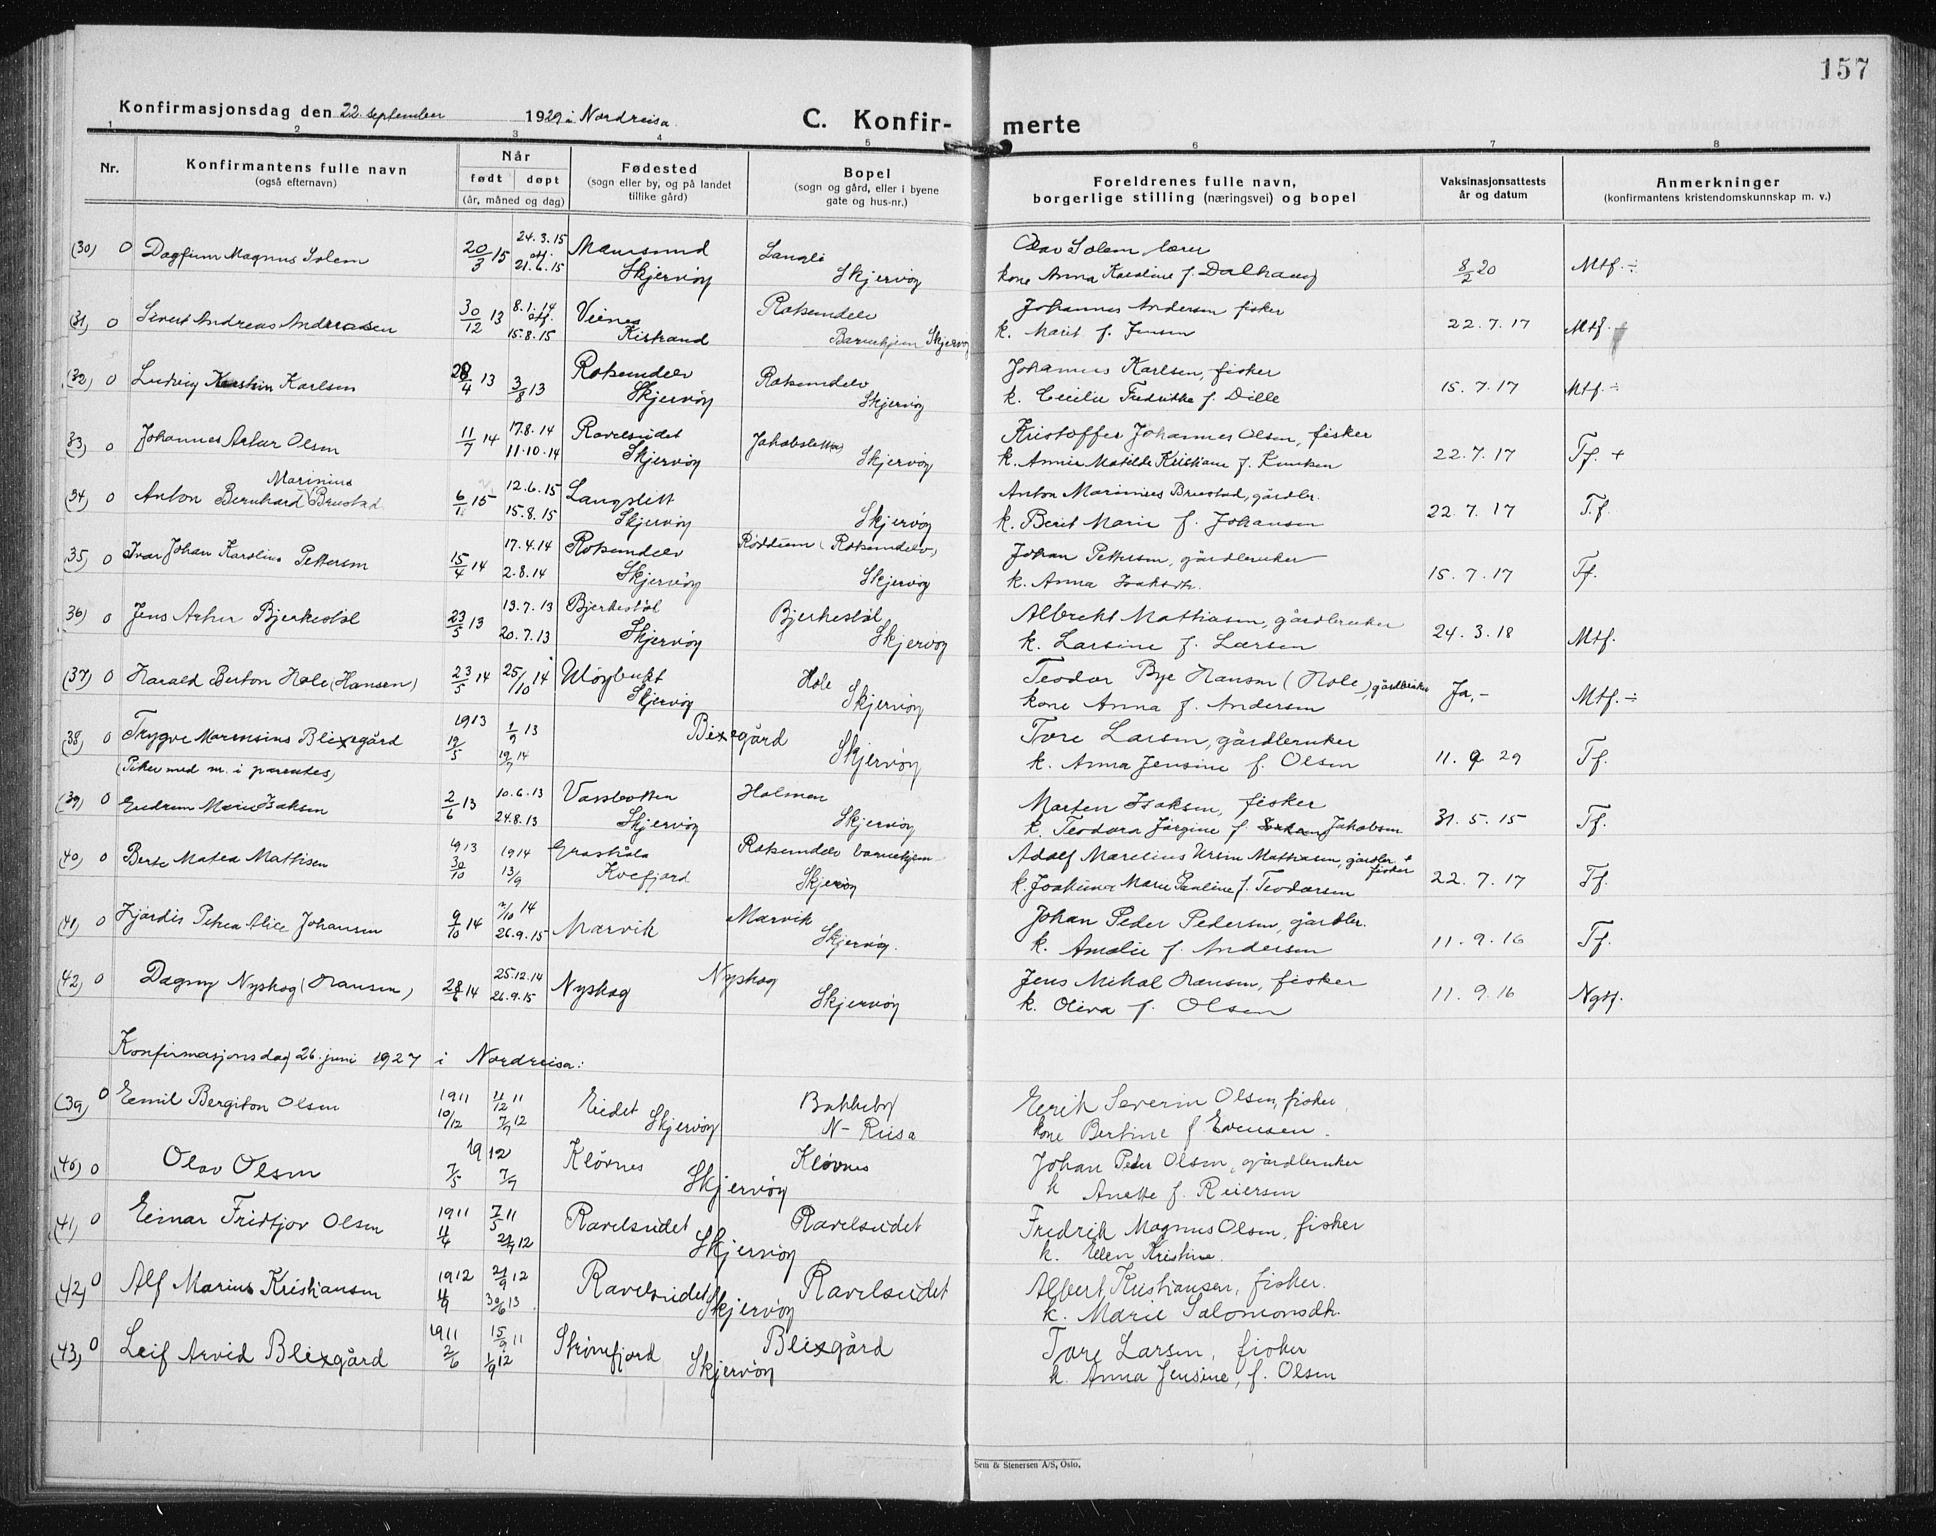 157
Konfirmasjonsdag den 22. september 1929 i Nordreisa
C. Konfirmerte
1 2 3 4 5 6 7 8
Nr.
Konfirmantens fulle navn
(også efternavn)
Når
født døpt
(år, måned og dag)
Fødested
(sogn eller by, og på landet
tillike gård)
Bopel
(sogn og gård, eller i byene
gate og hus-nr.)
Foreldrenes fulle navn,
borgerlige stilling (næringsvei) og bopel
Vaksinasjonsattests
år og datum
Anmerkninger
(konfirmantens kristendomskunnskap m. v.)
(30) 0 Dagfinn Magnus Solem 20/3 15 24.3.15 21.6.15 Maursund Skjervøy Langli Skjervøy Olav Solem lærer
kone Anna Karoline f. Dalhaug 8/2 20 Mtf. ÷
(31) 0 Sivert Andreas Andreassen 30/12 13 8.1.14 15.8.15 Veines Kistrand Rotsundelv Barnehjem Skjervøy Johannes Andersen fisker
k. Marit f. Jensen 22.7.17 Mtf.
(32) 0 Ludvig Karlsen 28/4 13 3/8 13 Rotsundelv Skjervøy Rotsundelv Skjervøy Johannes Karlsen, fisker
k. Cecilie Fredrikke f. Dille 15.7.17 Mtf. ÷
33) 0 Johannes Artur Olsen 11/7 14 17.8.14 11.10.14 Ravelseidet Skjervøy Jakobsletta Skjervøy Kristoffer Johannes Olsen, fisker
k. Annie Matilde Kristiane f. Knutsen 22.7.17 Tf. +
(34) 0 Anton Bernhard Marinius Brustad 6/1 15 12.6.15 15.8.15 Langslett Skjervøy Skjervøy Anton Marinius Brustad, gårdbr.
k. Berit Marie f. Johansen 22.7.17 T.f.
35) 0 Ivar Johan Karolius Pettersen 15/4 14 17.4.14 2.8.14 Rotsundelv Skjervøy (Rotsundelv) Skjervøy Johan Pettersen, gårdbruker
k. Anna Isaksdtr. 15.7.17 Tf.
36) 0 Jens Artur Bjerkestøl 23/5 13 13.7.13 20.7.13 Bjerkestøl Skjervøy Bjerkestøl Skjervøy Albrekt Mathiasen, gårdbruker
k. Larsine f. Larsen 24.3.18 Mtf.
(37) 0 Harald Berton Hole (Hansen) 23/5 14 25/10 14 Uløybukt Skjervøy Hole Skjervøy Teodor Bye Hansen (Hole), gårdbruker
kone Anna f. Andersen Ja,- Mtf. ÷
(38) 0 Trygve Marensius Blixgård 1913 19/5 1/9 13 19/7 14 Blixgård Skjervøy Tore Larsen, gårdbruker
k. Anna Jensine f. Olsen 11.9 29 Tf.
(Piker med nr. i parentes)
(39) 0 Gudrun Marie Isaksen 2/6 13 10.6.13 24.8.13 Vassbotten Skjervøy Holmen Skjervøy Morten Isaksen, fisker
k. Teodora Jørgine f. Jakobsen 31.5.15 Tf.
(40) 0 Berte Matea Mattisen 1913 30/10 1914 13/9 Kvefjord Rotsundelv barnehjem Skjervøy Adolf Marelius Ursin Mathiasen, gårdbr. + fisker
k. Joakima Marie Pauline f. Teodorsen 22.7.17 Tf.
(41) 0 Hjørdis Petrea Alice Johansen 9/10 14 /10 14 26.9.15 Marvik Marvik Skjervøy. Johan Peder Pedersen, gårdbr.
k. Amalie f. Andersen 11.9.16 Tf.
(42) 0 Dagny Nyskog (Hansen) 28/6 14 25.12.14 26.9.15 Nyskog Nyskog Skjervøy Jens Mikal Hansen, fisker
k. Oliva f. Olsen 11.9.16 Ngtf.
Konfirmasjonsdag 26. juni 1927 i Nordreisa:
(39) 0 Emil Bergiton Olsen 1911 10/12 /12 11 7/7 12 Eidet Skjervøy Bakkeby N-Reisa Eerik Severin Olsen, fisker,
kone Bertine f. Evensen.
(40) 0 Olav Olsen 1912 7/5 7/7 Kløvnes Skjervøy Kløvnes Johan Peder Olsen, gårdbruker
k Anette f. Reiersen
(41) 0 Einar Fridtjov Olsen 1911 4/4 7/5 11 /7 12 Ravelseidet Skjervøy Ravelseidet Fredrik Magnus Olsen, fisker
k. Ellen Kristine.
(42) 0 Alf Marius Kristiansen 1912 4/9 2/9 12 30/6 13 Ravelseidet Skjervøy Ravelseidet Albert Kristiansen, fisker.
k. Marie Salomonsdtr.
(43) 0 Leif Arvid Blixgård 1911 2/6 15/9 11 1/9 12 Skjervøy Blixgård Tore Larsen, fisker
k. Anna Jensine, f. Olsen
Sem & Stenersen A/S, Oslo.